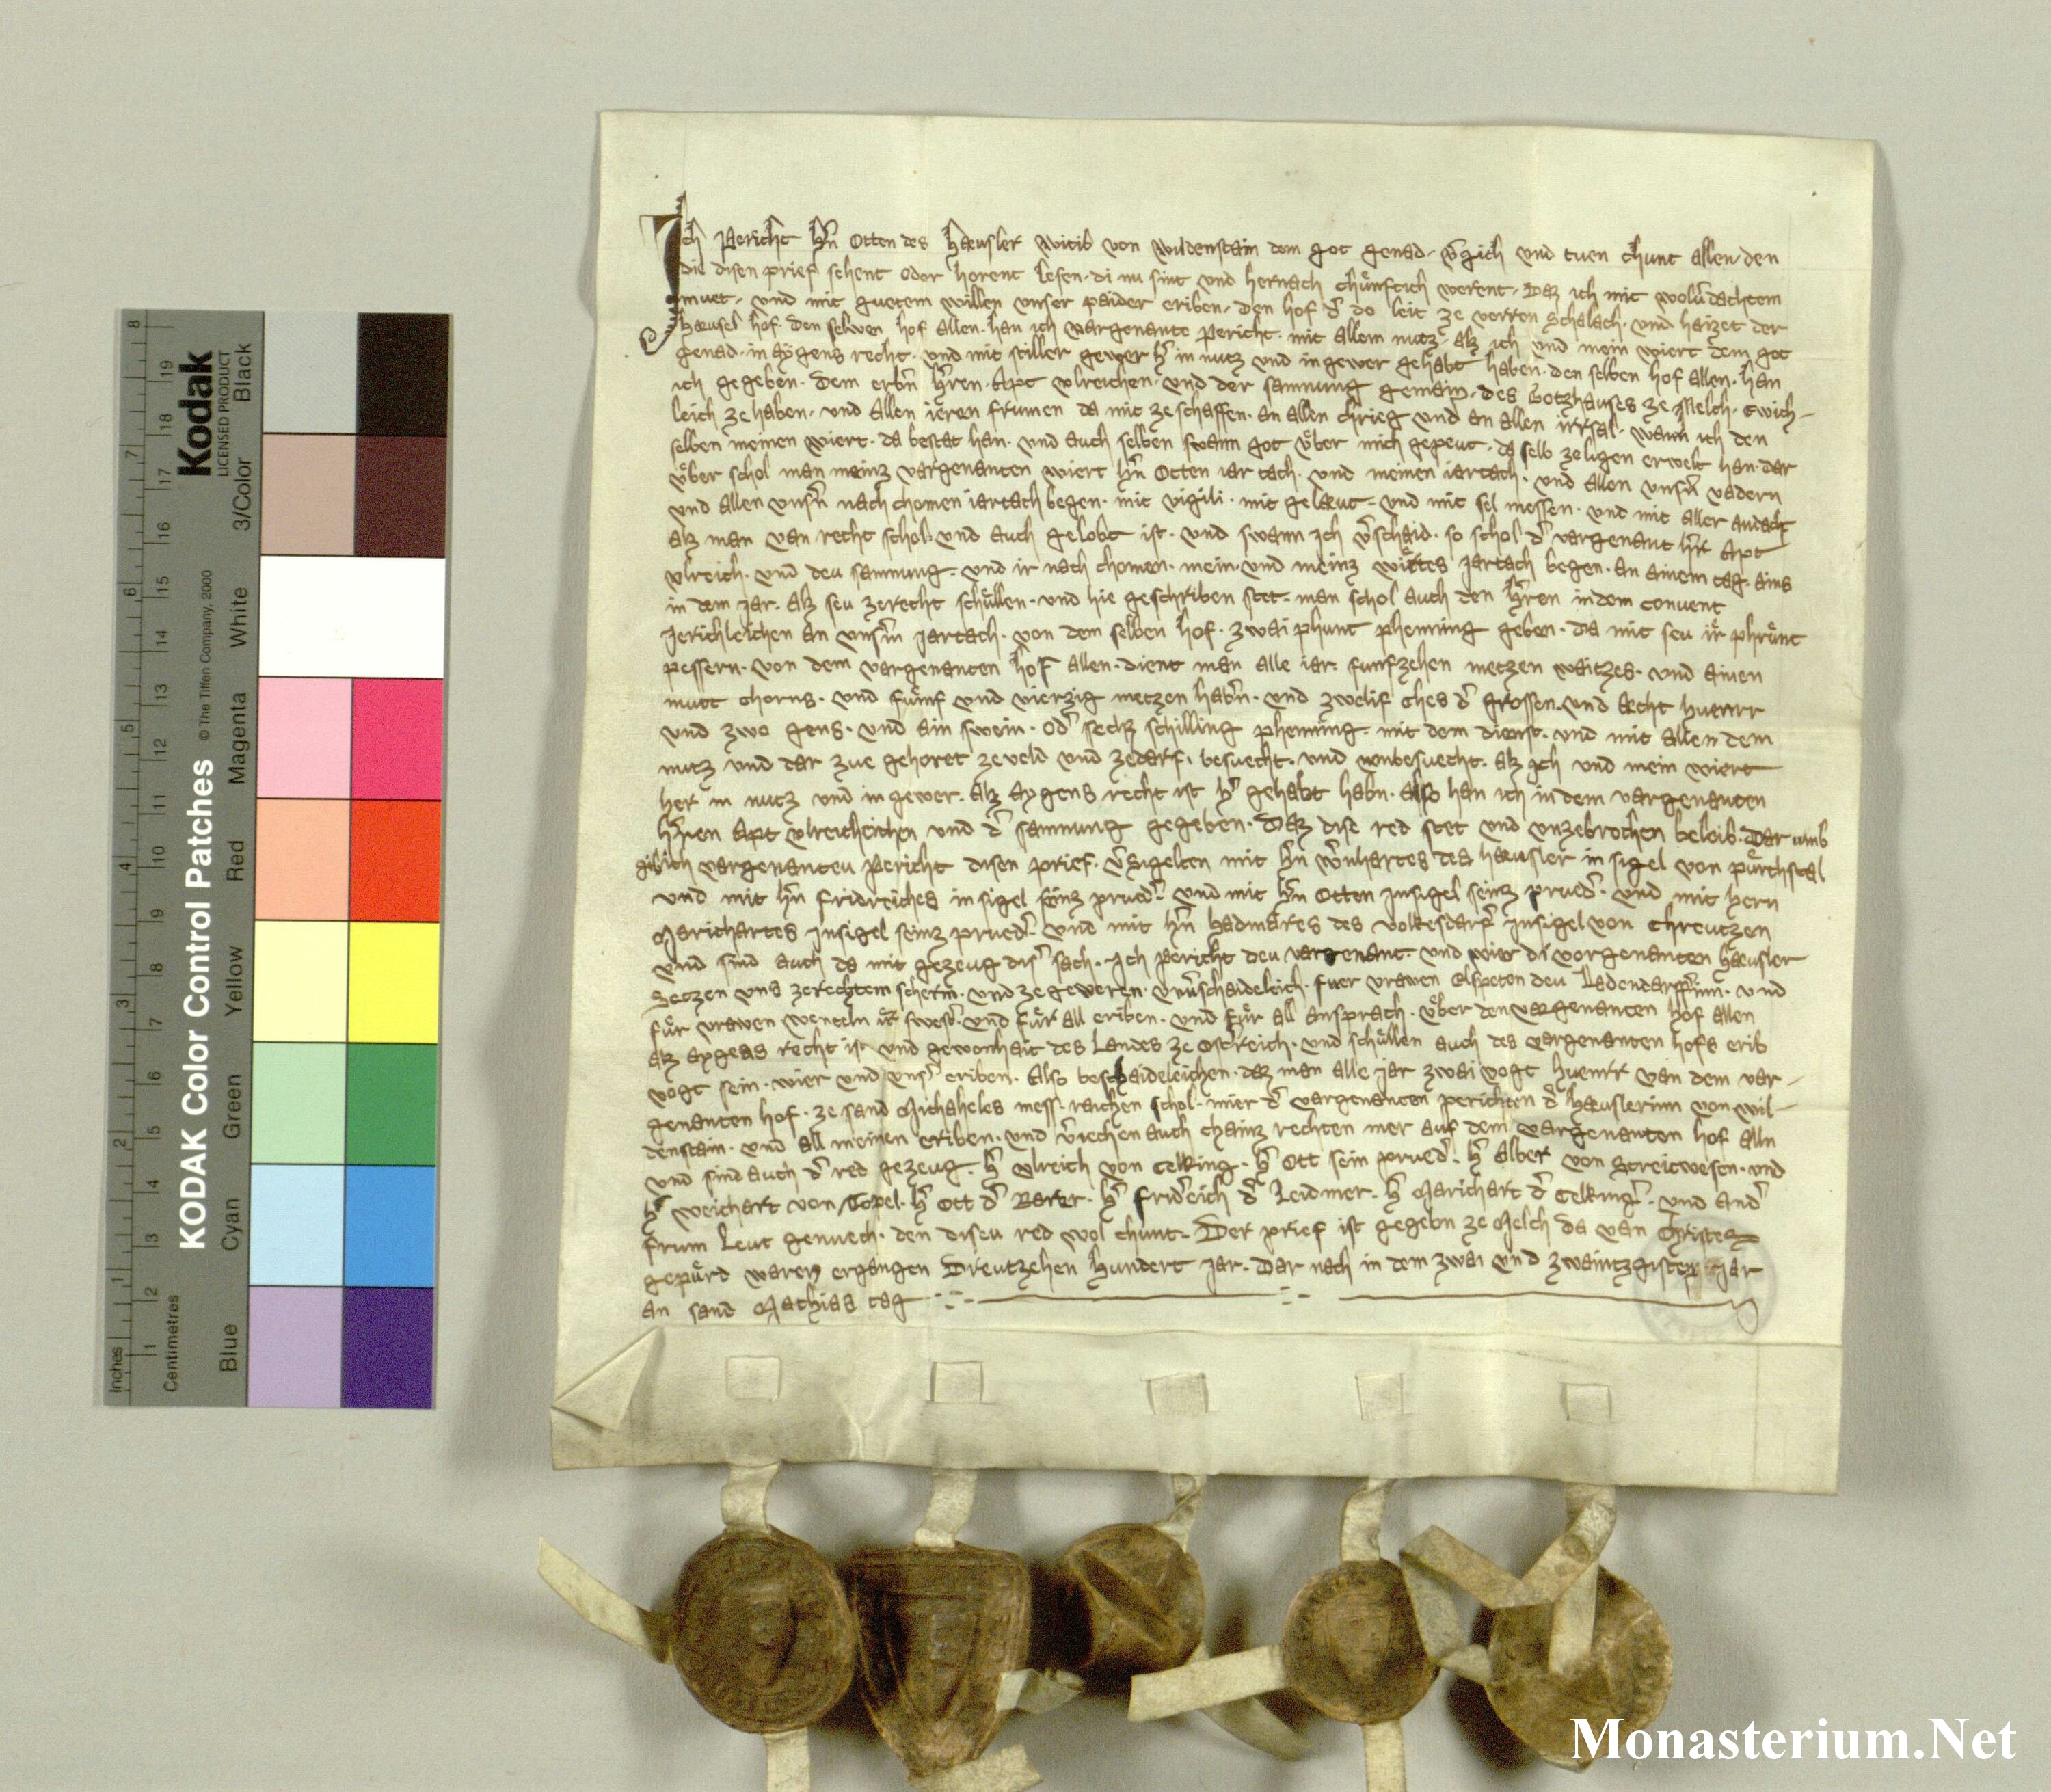 Ich Pericht h̄n Otten des Hæusler witib von wildenstain dem got genad · v̄gich vnd tuen chunt allen den
die disen prief sehent oder horent lesen · di nu sint vnd hernach chuͤnftich werent · Daz ich mit wolv̄dachtem
muet · vnd mit guetem willen vnser paider eriben · den hof d̄ do leit ze verren Schalach · vnd haizet der
Hæusel hof · den selben hof allen · han ich vargenante Pericht · mit allem nutz · alz ich vnd mein wiert dem got
genad · in aygens recht · vnd mit stiller gewer h̄ in nutz vnd in gewer gehabt haben · den selben hof allen · han
ich gegeben · dem erbn̄ h̄ren · Apt vlreichen · vnd der samnung gemain · des Gotzhauses ze Melch · ewich-
leich ze haben · vnd allen ieren frumen da mit ze schaffen · an allen chrieg vnd an allen irrsal · wann ich den
selben meinen wiert · da bestat han · vnd auch selben swann got uͤber mich gepeut · da selb zeligen erwelt han · dar
uͤber schol man meinz vargenanten wiert h̄n Otten iar tach · vnd meinen iartach · vnd allen vnsn̄ vadern
vnd allen vnsn̄ nach chomen iartach begen · mit vigili · mit gelæut · vnd mit sel messen · vnd mit aller andacht
alz man van recht schol · vnd auch gelobt ist · vnd swann ich v̄schaid · so schol d̄ vargenant h̄r Apt
vlreich · vnd deu samnung · vnd ir nach chomen · mein vnd meinz wiertes Jartach begen · an ainem tag · ains
in dem Jar · alz seu zerecht schuͤllen · vnd hie geschriben stet · man schol auch den h̄ren in dem convent
Jerichleichen an vnsm̄ Jartach · von dem selben hof · zwai phunt phenning geben · da mit seu ir phruͤnt
pessern · von dem vargenanten hof allen · dient man alle iar · funfzehen metzen waitzes · vnd ainen
mutt chorns · vnd fuͤmf vnd vierzig metzen habn̄ · vnd zwelif ches d̄ grossen · vnd æcht huenrr
vnd zwo gens · vnd ain swein · od̄ sechz schilling phenning · mit dem dienst · vnd mit allen dem
nutz vnd dar zue gehoret zeveld vnd zedarf · besuecht · vnd vnbesuecht · alz Jch vnd mein wiert
her in nutz vnd in gewer · alz aygens recht ist h̄ gehabt habn · also han ich in dem vargenanten
h̄ren Apt vlreicheichen vnd d̄ samnung gegeben · Daz dise red stet vnd vnzebrochen beleib · Dar umb
gib ich vargenanteu Pericht disen prief · v̄sigelten mit h̄n wn̄hartes des hæusler in sigel von puͤrchstal
vnd mit h̄n fridreiches in sigel seinz prued̄ · vnd mit h̄n Otten Insigel seinz prued̄ · vnd mit hern
Marichartes Insigel seinz prued̄ · vnd mit h̄n hadmares des volkesdarf̄ Insigel von chreutzen
vnd sind auch da mit gezeug dis̄ sach · Ich Pericht deu vargenant · vnd wier di vorgenanten hæusler
Setzen vns zerechtem scherm · vnd ze geweren · vnv̄schaideleich · fuer vrawen Elspeten deu Ladendarfferinn · vnd
fuͤr vrawen wenteln ir swest̄ · vnd fuͤr all eriben · vnd fuͤr all ansprach · uͤber den vargenanten hof allen
alz aygens recht ist vnd gewonhait des Landes ze Ostr̄reich · vnd schuͤllen auch des vargenanten hofs erib
vogt sein · wier vnd vns̄ eriben · Also beschaideleichen · daz man alle Jar zwai vogt huenrr van dem var-
genanten hof · ze sand Michaheles mess · raichen schol · mier d̄ vargenanten perichten d̄ hæuslerinn von wil-
denstain · vnd all meinen eriben · vnd v̄iechen auch chainz rechten mer auf dem vargenanten hof alln
vnd sind auch d̄ red gezeug · h̄ vlreich von Celking · h̄ Ott sein prued̄ · h̄ Alber von Streitwesen · vnd
h̄ weichart von Topel · h̄ Ott d̄ Barer · h̄ frid̄eich d̄ Leidmer · h̄ Marichart d̄ Celkinḡ · vnd and̄
frum Leut genuech · den diseu red wol chunt · Der prief ist gegebn ze Melch da van Christes
gepuͤrd waren ergangen Dreutzehen hundert jar · dar nach in dem zwai vnd zwaintzgisten Jar
an sand Mathias tag
KODAK Color Control Patches
© The Tiffen Company, 2000
Kodak
LICENSED PRODUCT
Inches
Centimetres
Blue
Cyan
Green
Yellow
Red
Magenta
White
3/Color
Black
Monasterium.Net